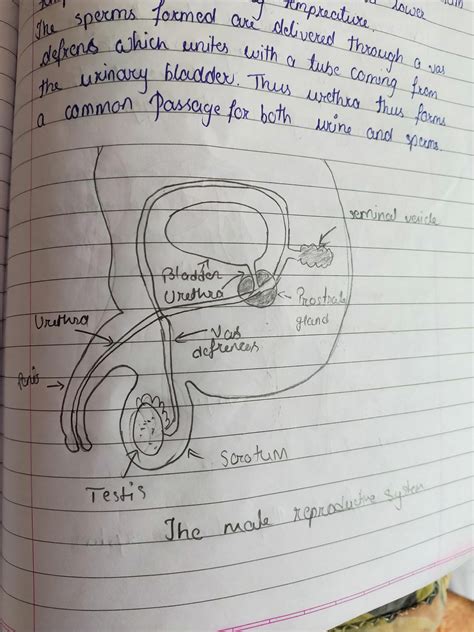 temprecture. lower
The sperms formed are delivered through a vas
defrens which unites with a tube coming from
the urinary bladder. Thus urethra thus forms
a common passage for both urine and sperms.
seminal vesicle
Bladder
Urethra
Prostrate
gland
Urethra
Vas
defrences
Penis
Scrotum
Testis
The male reproductive system